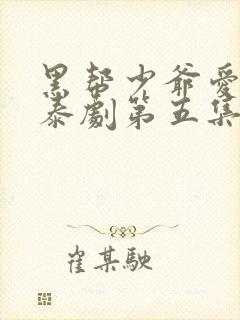 黑帮少爷爱
泰劇第五集
崔某駛